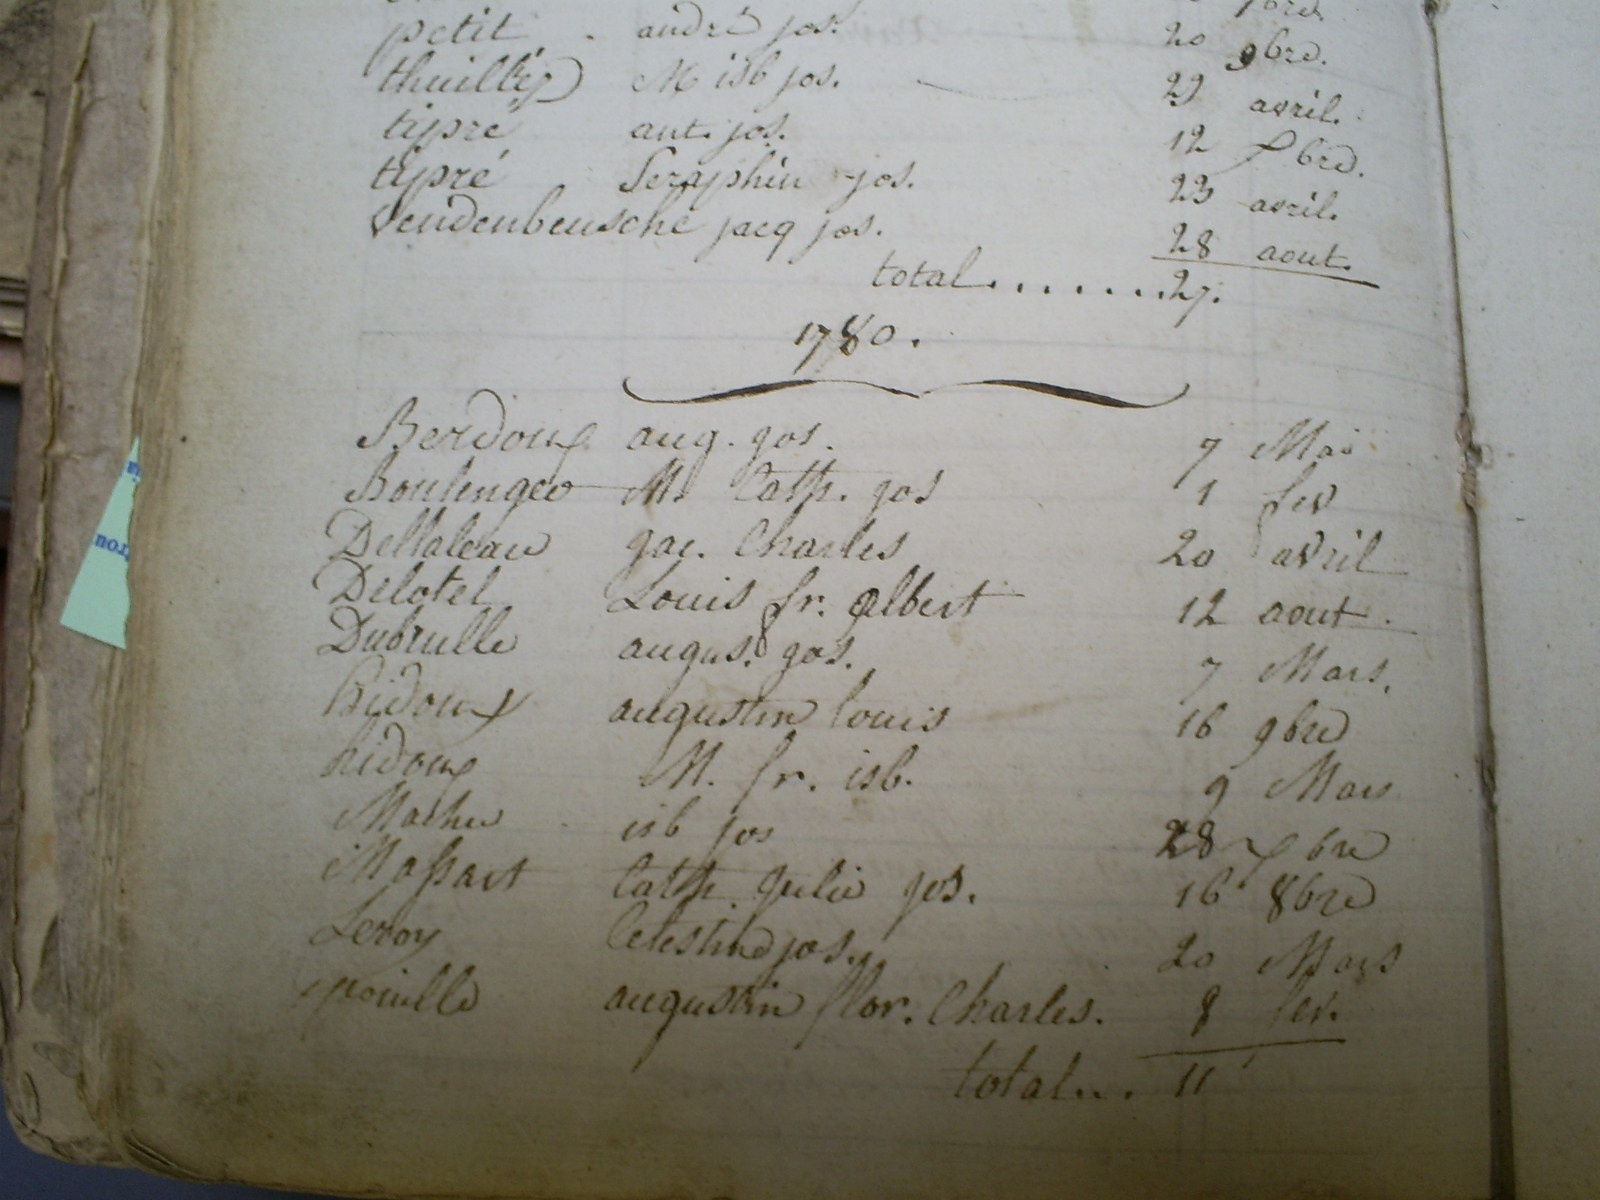 petit andré jos. 20 9bre.
thuilléz M isb jos. 29 avril.
tipré ant. jos. 12 bre.
tipré Seraphin jos. 23 avril.
Vendenbeusche jacq jos. 28 aout.
total........27.
1780.
Berdoux aug. jos. 7 Mai
Boulenger M. Cath. jos 1 fev
Dellaleau jac. Charles 20 avril
Delotel Louis fr. albert 12 aout.
Dubrulle augus. jos. 7 Mars.
hidoux augustin louis 16 9bre
hidoux M. fr. isb. 9 Mars
Mathu isb jos 28 bre
Massart Cath. julie jos. 16 8bre
Leroy Celestine jos. 20 Mars
pouille augustin flor. Charles. 8 fev.
total... 11
rou